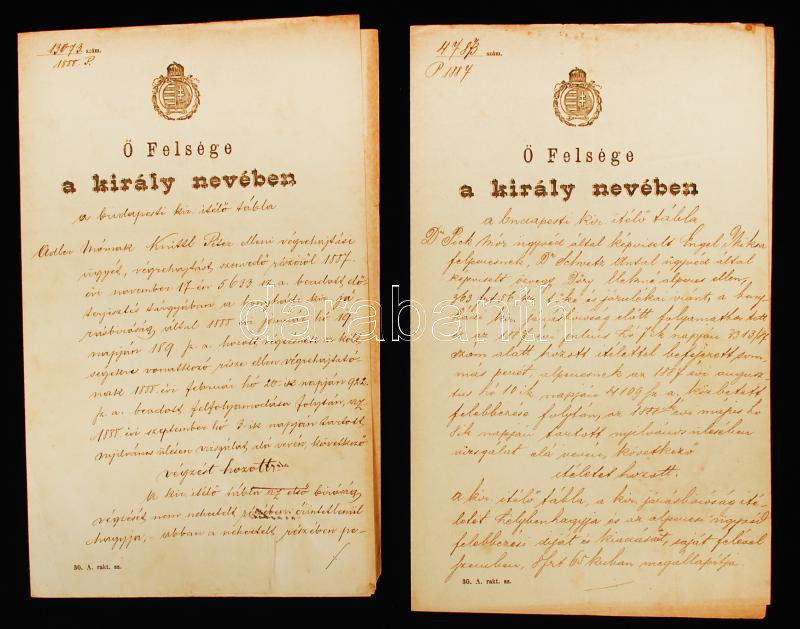 13073 szám.
1888. P.
Ő Felsége
a király nevében
a budapesti kir. itélő tábla
Adler Mórnak Knittl Péter elleni végrehajtási
ügyét, végrehajtást szenvedő részéről 1887.
évi november 17-én 5633 sz. a. beadott elő
terjesztés tárgyában a bonyhádi kir. já
rásbiróság által 1888. évi január hó 19
napján 189 p. a. hozott végzésnek a költ
ségekre vonatkozó része ellen végrehajtató
nak 1888. évi február hó 20-ik napján 922
p. a. beadott felfolyamodása folytán, az
1888. évi szeptember hó 3-ik napján tartott
nyilvános ülésen vizsgálat alá vevén, következő
végzést hozott:
A kir. itélő tábla az első biróság
végzését nem neheztelt részében érintetlenül
hagyja, - abban a neheztelt részében pe-
30. A. rakt. sz.
4783 szám.
P 1887
Ő Felsége
a király nevében
a budapesti kir. itélő tábla
Dr Peck Mór ügyvéd által képviselt Engel Miksa
felperesnek, Dr ügyvéd által
képviselt özvegy alperes ellen,
763 frt 56 kr tőke és járulékai iránt, a bony
hádi kir. járásbiróság előtt folyamatba tett
s az 1887 évi hó napján 3313/87
szám alatt hozott itélettel befejezett som
más perét, alperesnek az 1887 évi augusz
tus hó 10-ik napján 4109 p. a. közbetett
felebbezése folytán, az 1888-ik évi május hó
8-ik napján tartott nyilvános ülésében
vizsgálat alá vevén, következő
itéletet hozott:
A kir. itélő tábla, a kir. járásbiróság ité-
letét helybenhagyja és az alperesi ügyvéd
felebbezési díját és kiadását, saját felével
szemben, 8 frt 65 krban megállapítja.
30. A. rakt. sz.
darabanth